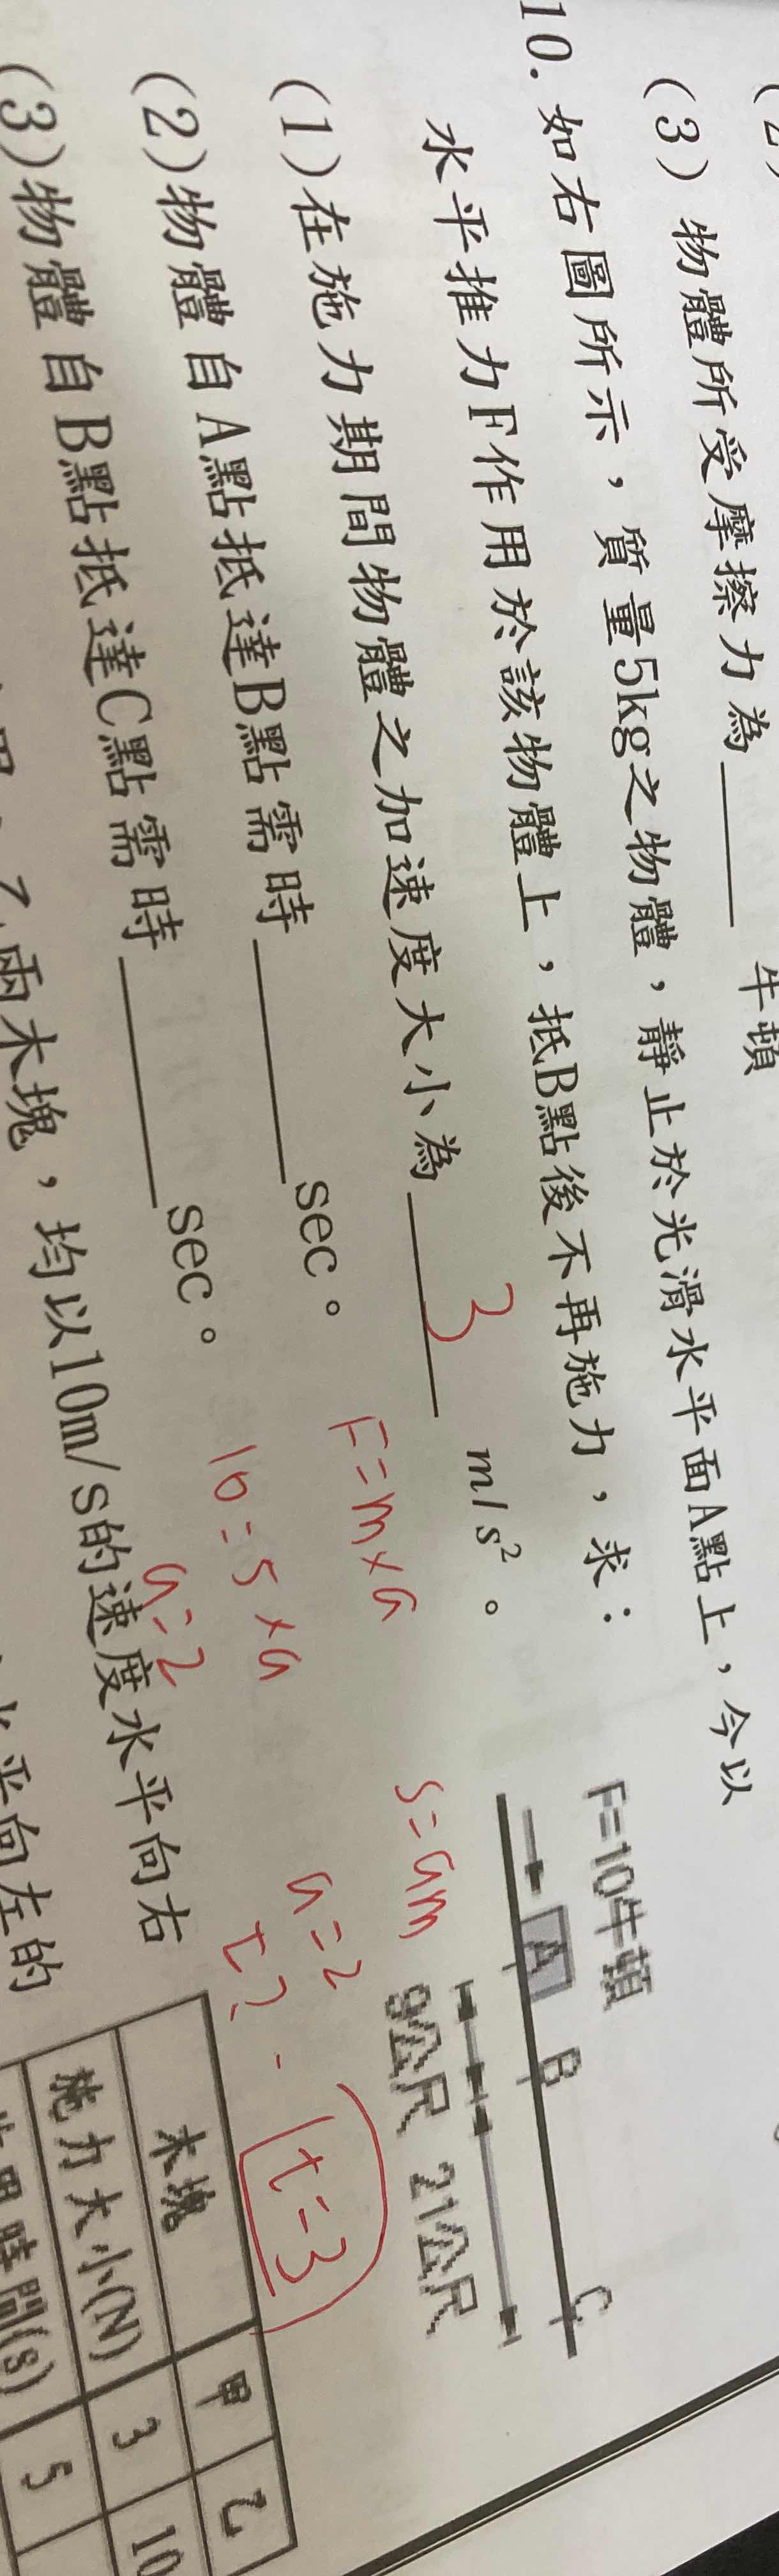 (3) 物體所受摩擦力為______牛頓
10. 如右圖所示，質量5kg之物體，靜止於光滑水平面A點上，今以
水平推力F作用於該物體上，抵B點後不再施力，求：
(1)在施力期間物體之加速度大小為 3 m/s²。
(2)物體自A點抵達B點需時______sec。
(3)物體自B點抵達C點需時______sec。
F=10牛頓
A B C
9公尺 21公尺
F=m×a
10=5×a
a=2
S=am
a=2
t?
t=3
乙兩木塊，均以10m/s的速度水平向右
水平向左的
木塊 甲 乙
施力大小(N) 3 10
時間(s) 5